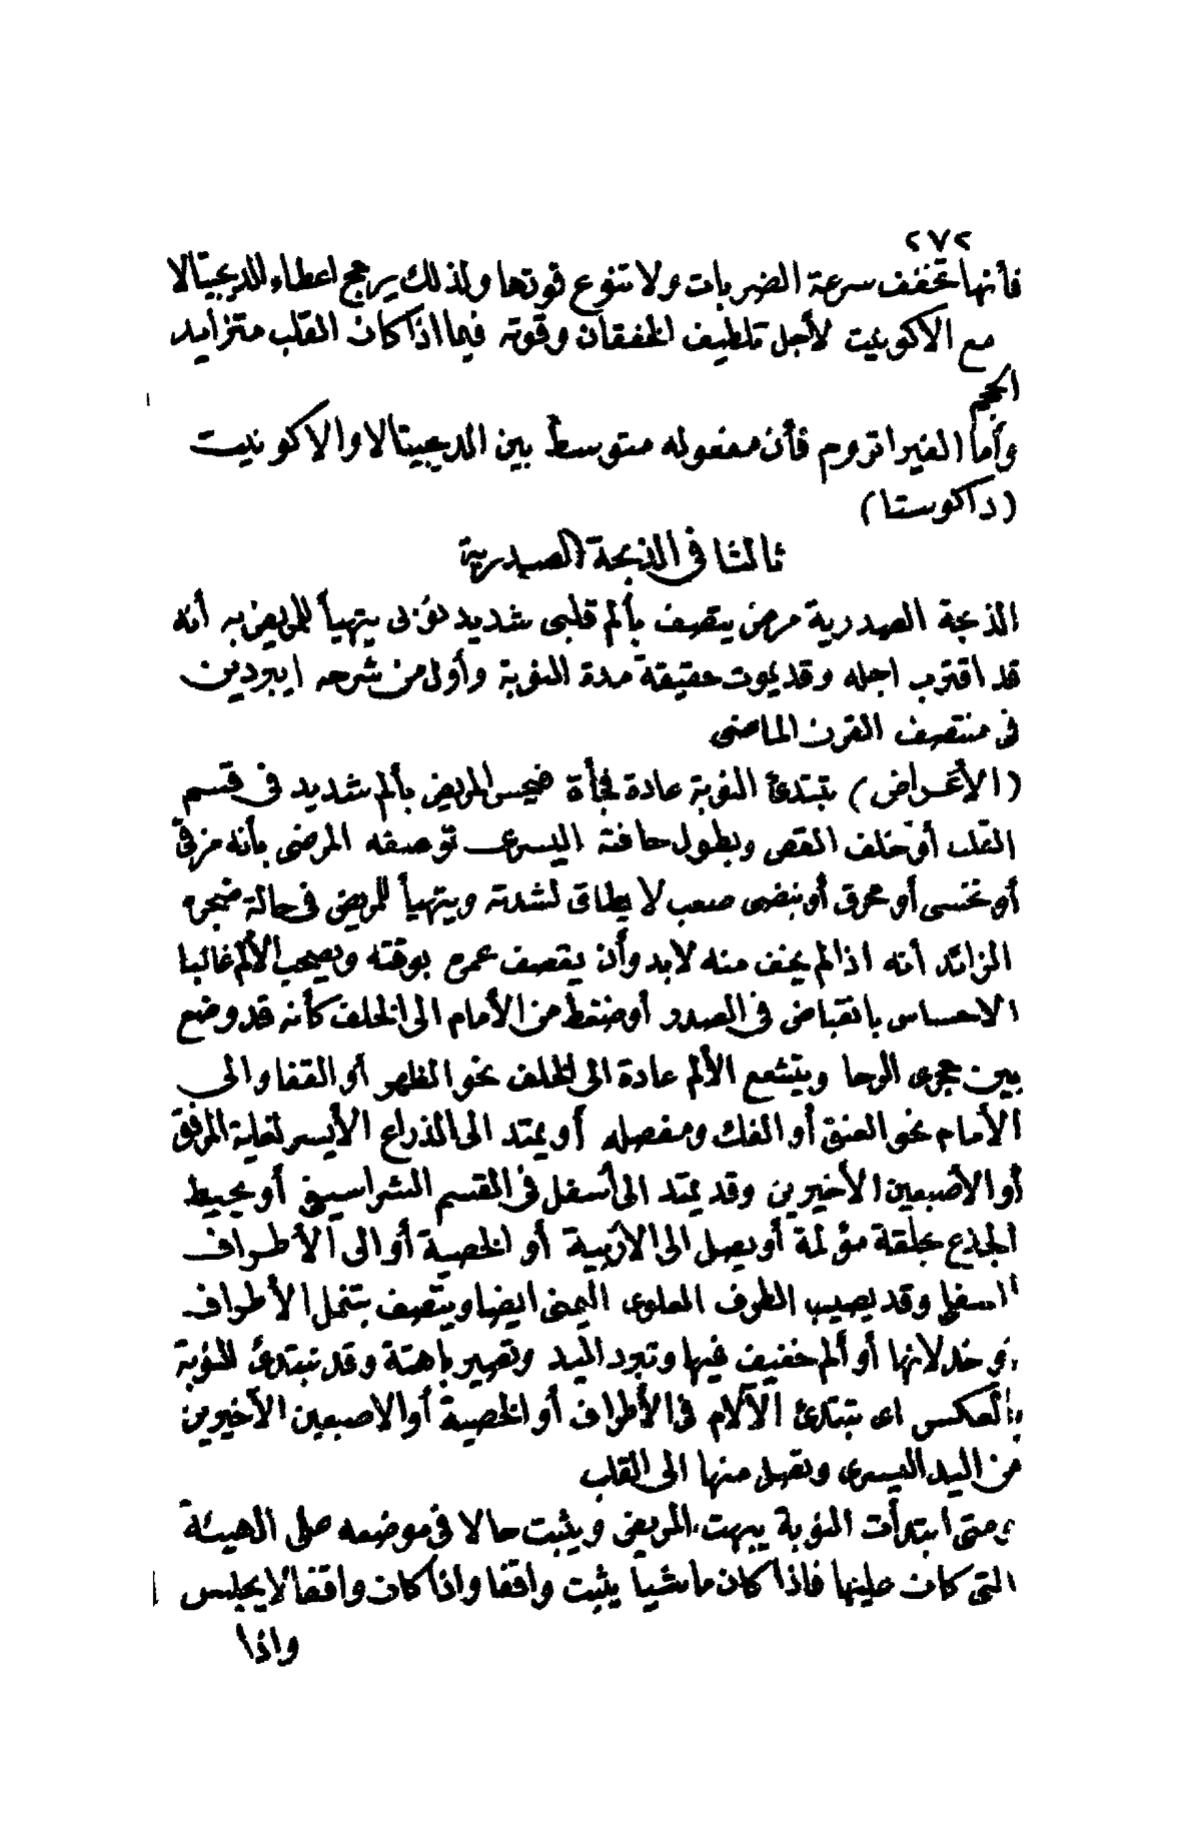 ٢٧٢
فأنها تخفف سرعة الضربات ولا تنوع قوتها ولذلك يرجح اعطاء الديجيتالا
مع الاكونيت لأجل تلطيف الخفقان وقوته فيما اذا كان القلب متزايد
الحجم
وأما الفيراتروم فأن مفعوله متوسط بين الديجيتالا والاكونيت
(داكوستا)
ثالثا فى الذبحة الصدرية
الذبحة الصدرية مرض يتصف بألم قلبى شديد نوبى يتهيأ للمريض به أنه
قد اقترب اجله وقد يموت حقيقة مدة النوبة وأول من شرحه ايبردين
فى منتصف القرن الماضى
(الأعراض) تبتدئ النوبة عادة فجأة فيحس المريض بألم شديد فى قسم
القلب أو خلف القص وبطول حافته اليسرى توصفه المرضى بأنه مزقى
أو نخسى أو محرق أو نبضى صعب لا يطاق لشدته ويتهيأ للمريض فى حالة ضجره
الزائد أنه اذا لم يخف منه لابد وأن يقصف عمره بوقته ويصحب الألم غالبا
الاحساس بانقباض فى الصدر أو ضغط من الأمام الى الخلف كأنه قد وضع
بين حجرى الرحا ويتشعع الألم عادة الى الخلف نحو الظهر أو القفا والى
الأمام نحو العنق أو الفك ومفصله أو يمتد الى الذراع الأيسر لغاية المرفق
أو الأصبعين الأخيرين وقد يمتد الى أسفل فى القسم الشراسيفى أو يحيط
الجذع بحلقة مؤلمة أو يصل الى الأربية أو الخصية أو الى الأطراف
السفلى وقد يصيب الطرف العلوى اليمنى ايضا ويتصف بتنمل الأطراف
وخدلانها أو ألم خفيف فيها وتبرد اليد وتصير باهتة وقد تبتدئ النوبة
بالعكس اى تبتدئ الآلام فى الأطراف أو الخصية أو الاصبعين الأخيرين
من اليد اليسرى وتصل منها الى القلب
ومتى ابتدأت النوبة يبهت المريض ويثبت حالا فى موضعه على الهيئة
التى كان عليها فاذا كان ماشيا يثبت واقفا واذا كان واقفا لا يجلس
واذا